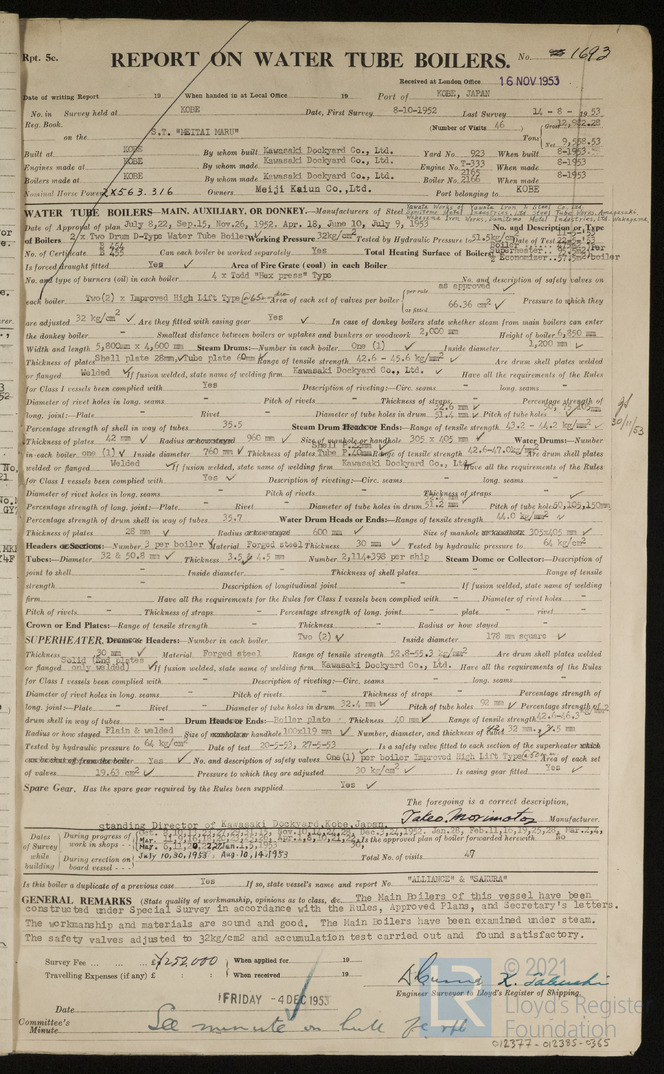 Rpt. 5c.
REPORT ON WATER TUBE BOILERS.
No. 1693
Received at London Office 16 NOV 1953
Date of writing Report 19 When handed in at Local Office 19 Port of KOBE, JAPAN
No. in Survey held at KOBE Date, First Survey 8-10-1952 Last Survey 14-8-1953
Reg. Book. (Number of Visits 46 Gross 12,982.28
on the S.T. "MEITAI MARU" Tons Net 9,558.53
Built at KOBE By whom built Kawasaki Dockyard Co., Ltd. Yard No. 923 When built 8-1953
Engines made at KOBE By whom made Kawasaki Dockyard Co., Ltd. Engine No. T-333 When made 8-1953
Boilers made at KOBE By whom made Kawasaki Dockyard Co., Ltd. Boiler No. 2165 2166 When made 8-1953
Nominal Horse Power 2X563.316 Owners Meiji Kaiun Co., Ltd. Port belonging to KOBE
WATER TUBE BOILERS—MAIN, AUXILIARY, OR DONKEY.—Manufacturers of Steel
Date of Approval of plan July 8,22, Sep.15, Nov.26, 1952. Apr. 18, June 10, July 9, 1953 No. and Description or Type
of Boilers 2 x Two Drum D-Type Water Tube Boiler Working Pressure 32kg/cm2 Tested by Hydraulic Pressure to 51.5kg/cm2 Date of Test
No. of Certificate B 454 B 455 Can each boiler be worked separately Yes Total Heating Surface of Boilers
Is forced draught fitted Yes Area of Fire Grate (coal) in each Boiler -
No. and type of burners (oil) in each boiler 4 x Todd "Hex press" Type No. and description of safety valves on
each boiler Two(2) x Improved High Lift Type Area of each set of valves per boiler per rule as approved as fitted 66.36 cm2 Pressure to which they
are adjusted 32 kg/cm2 Are they fitted with easing gear Yes In case of donkey boilers state whether steam from main boilers can enter
the donkey boiler - Smallest distance between boilers or uptakes and bunkers or woodwork 2,000 mm Height of boiler 6,850 mm
Width and length 5,800mm x 4,600 mm Steam Drums:—Number in each boiler One (1) Inside diameter 1,200 mm
Thickness of plates Shell plate 28mm, Tube plate 60mm Range of tensile strength 42.6 - 45.6 kg/mm2 Are drum shell plates welded
or flanged Welded If fusion welded, state name of welding firm Kawasaki Dockyard Co., Ltd. Have all the requirements of the Rules
for Class I vessels been complied with Yes Description of riveting:—Circ. seams - long. seams -
Diameter of rivet holes in long. seams - Pitch of rivets - Thickness of straps - Percentage strength of
long. joint:—Plate - Rivet - Diameter of tube holes in drum 32.6 mm 51.4 mm Pitch of tube holes
Percentage strength of shell in way of tubes 35.5 Steam Drum Heads or Ends:—Range of tensile strength 43.2 - 44.2 kg/mm2
Thickness of plates 42 mm Radius or how stayed 960 mm Size of manhole or handhole 305 x 405 mm Water Drums:—Number
in each boiler one (1) Inside diameter 760 mm Thickness of plates Tube P.40mm Range of tensile strength 42.6-47.0kg/mm2 Are drum shell plates
welded or flanged Welded If fusion welded, state name of welding firm Kawasaki Dockyard Co., Ltd. Have all the requirements of the Rules
for Class I vessels been complied with Yes Description of riveting:—Circ. seams - long. seams -
Diameter of rivet holes in long. seams - Pitch of rivets - Thickness of straps -
Percentage strength of long. joint:—Plate - Rivet - Diameter of tube holes in drum 51.2 mm Pitch of tube holes 50,105,150mm
Percentage strength of drum shell in way of tubes 35.7 Water Drum Heads or Ends:—Range of tensile strength 44.0 kg/mm2
Thickness of plates 28 mm Radius or how stayed 600 mm Size of manhole or handhole 305x405 mm
Headers or Sections:—Number 3 per boiler Material Forged steel Thickness 30 mm Tested by hydraulic pressure to 64 kg/cm2
Tubes:—Diameter 32 & 50.8 mm Thickness 3.5 & 4.5 mm Number 2,114+398 per ship Steam Dome or Collector:—Description of
joint to shell - Inside diameter - Thickness of shell plates - Range of tensile
strength - Description of longitudinal joint - If fusion welded, state name of welding
firm - Have all the requirements for the Rules for Class I vessels been complied with - Diameter of rivet holes -
Pitch of rivets - Thickness of straps - Percentage strength of long. joint:— plate - rivet -
Crown or End Plates:—Range of tensile strength - Thickness - Radius or how stayed -
SUPERHEATER. Drums or Headers:—Number in each boiler Two (2) Inside diameter 178 mm square
Thickness 30 mm Material Forged steel Range of tensile strength 52.8-55.3 kg/mm2 Are drum shell plates welded
or flanged Solid (End plates only welded) If fusion welded, state name of welding firm Kawasaki Dockyard Co., Ltd. Have all the requirements of the Rules
for Class I vessels been complied with - Description of riveting:—Circ. seams - long. seams -
Diameter of rivet holes in long. seams - Pitch of rivets - Thickness of straps - Percentage strength of
long. joint:—Plate - Rivet - Diameter of tube holes in drum 32.4 mm Pitch of tube holes 92 mm Percentage strength of
drum shell in way of tubes - Drum Heads or Ends:—Boiler plate Thickness 40 mm Range of tensile strength 42.6-46.3
Radius or how stayed Plain & welded Size of manhole or handhole 100x119 mm Number, diameter, and thickness of tubes
Tested by hydraulic pressure to 64 kg/cm2 Date of test 20-5-53, 27-5-53 Is a safety valve fitted to each section of the superheater which
can be shut off from the boiler Yes No. and description of safety valves One(1) per boiler Improved High Lift Type Area of each set
of valves 19.63 cm2 Pressure to which they are adjusted 30 kg/cm2 Is easing gear fitted Yes
Spare Gear. Has the spare gear required by the Rules been supplied Yes
The foregoing is a correct description,
standing Director of Kawasaki Dockyard, Kobe, Japan. Manufacturer.
Dates of Survey while building
During progress of work in shops - -
Is the approved plan of boiler forwarded herewith No
During erection on board vessel - - - July 10,30,1953 Aug.10,14,1953 Total No. of visits 47
Is this boiler a duplicate of a previous case Yes If so, state vessel's name and report No.
GENERAL REMARKS (State quality of workmanship, opinions as to class, &c. The Main Boilers of this vessel have been
constructed under Special Survey in accordance with the Rules, Approved Plans, and Secretary's letters.
The workmanship and materials are sound and good. The Main Boilers have been examined under steam.
The safety valves adjusted to 32kg/cm2 and accumulation test carried out and found satisfactory.
Survey Fee ... ... ... £¥252,000 When applied for 19
Travelling Expenses (if any) £ : : When received 19
Engineer Surveyor to Lloyd's Register of Shipping.
Date FRIDAY - 4 DEC 1953
Committee's Minute See minute on hull
30/11/53
© 2021
LR
Lloyd's Register
Foundation
012377-012385-0365